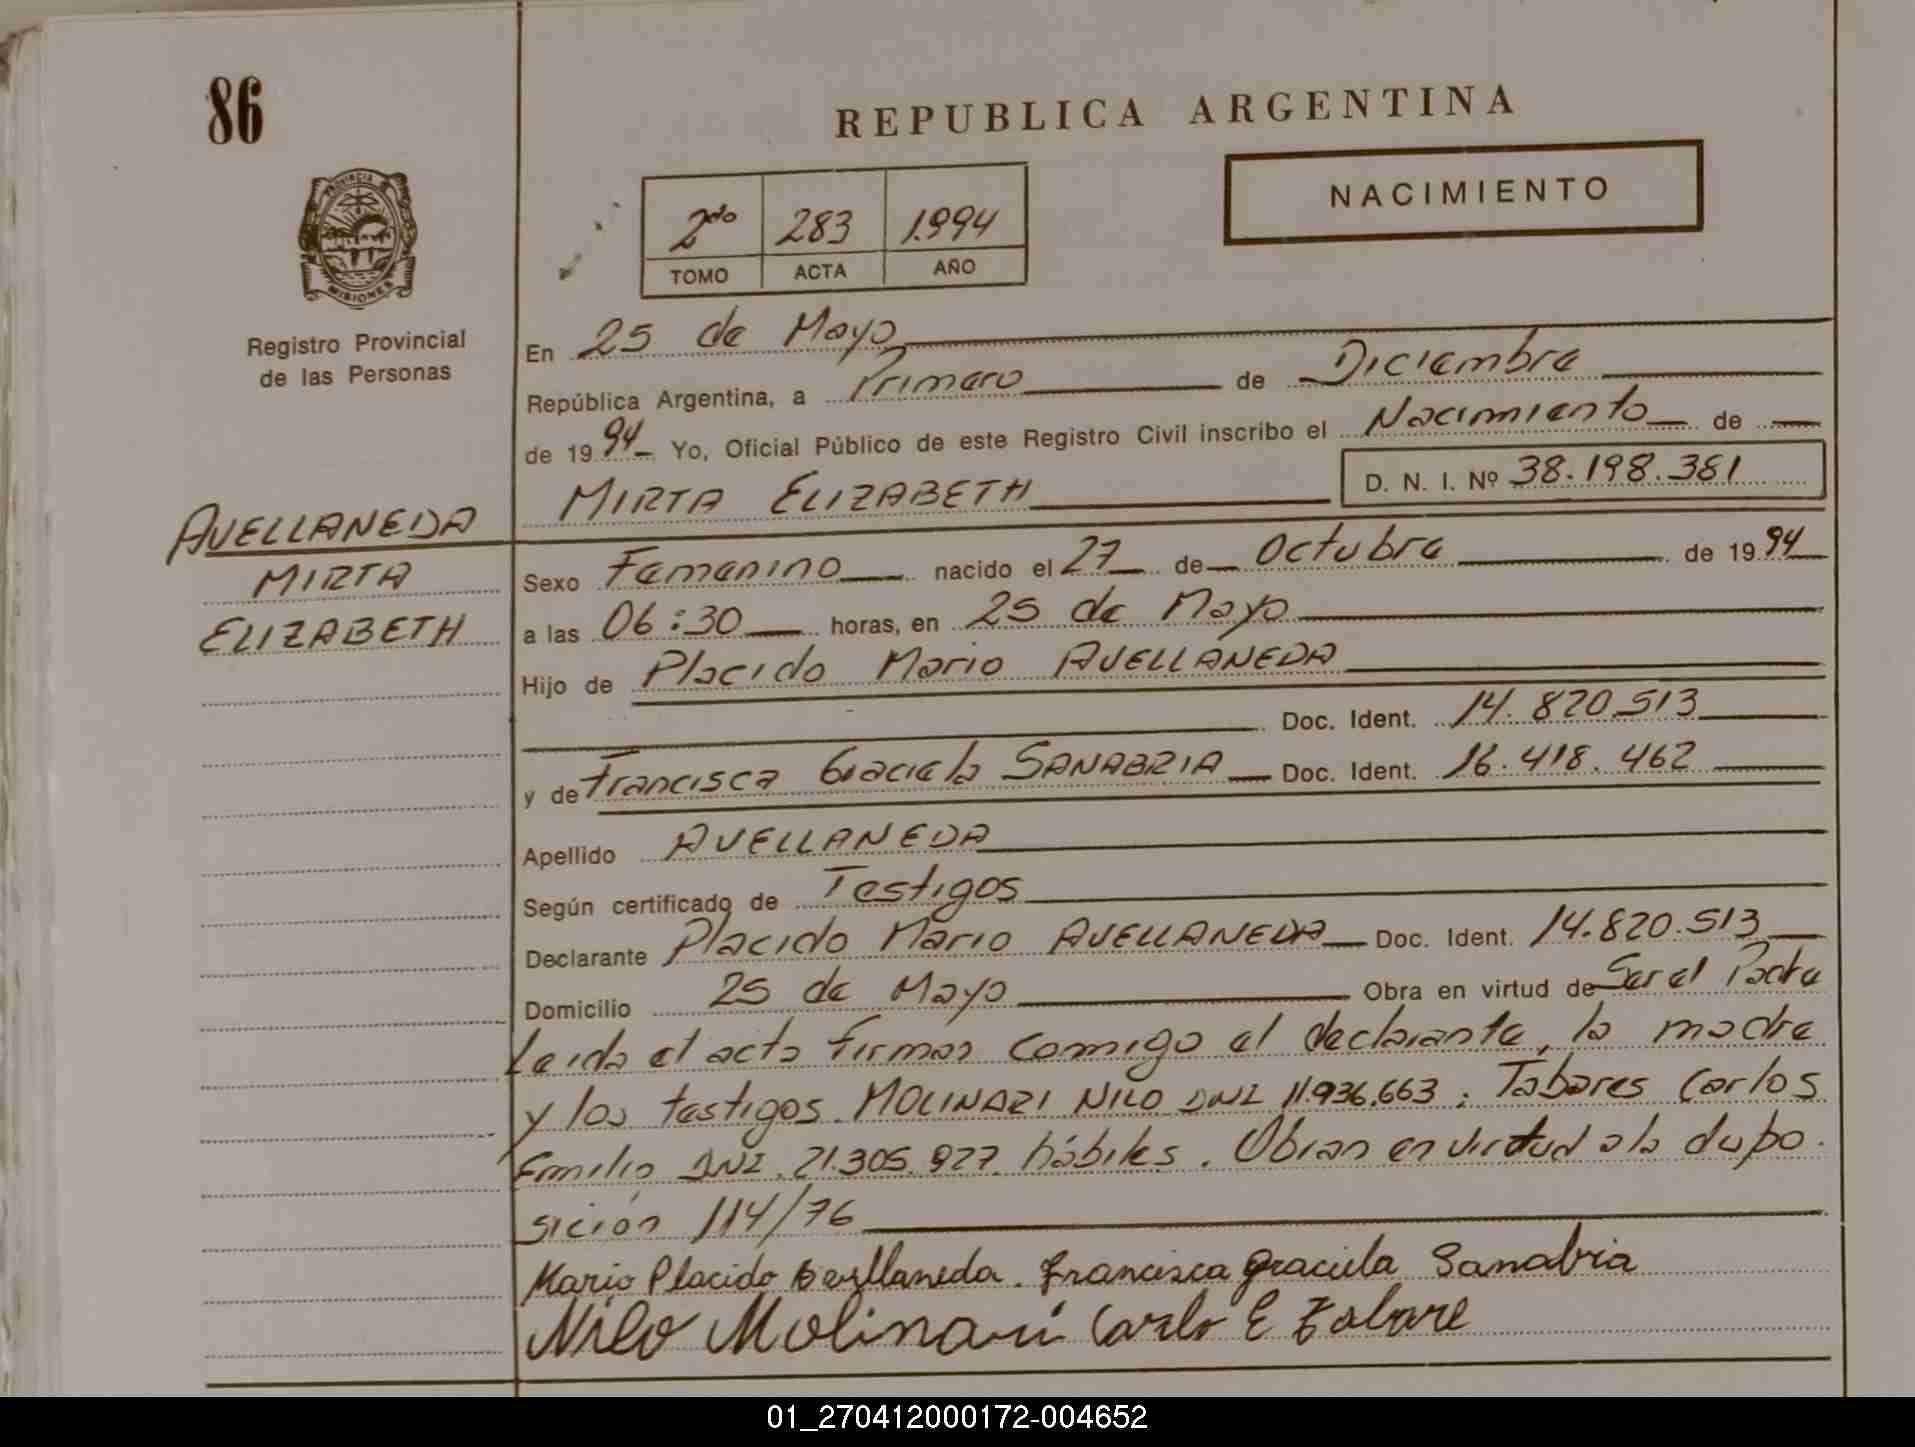 86
REPUBLICA ARGENTINA
NACIMIENTO
2do 283 1.994
TOMO ACTA AÑO
PROVINCIA
MISIONES
Registro Provincial
de las Personas
En 25 de Mayo
República Argentina, a Primero de Diciembre
de 1994 Yo, Oficial Público de este Registro Civil inscribo el Nacimiento de
MIRTA ELIZABETH D. N. I. Nº 38.198.381
AVELLANEDA
MIRTA
ELIZABETH
Sexo Femenino nacido el 27 de Octubre de 1994
a las 06:30 horas, en 25 de Mayo
Hijo de Placido Mario AVELLANEDA
Doc. Ident. 14.820.513
y de Francisca Graciela SANABRIA Doc. Ident. 16.418.462
Apellido AVELLANEDA
Según certificado de Testigos
Declarante Placido Mario AVELLANEDA Doc. Ident. 14.820.513
Domicilio 25 de Mayo Obra en virtud de Ser el Padre
Leida el acta firman comigo el declarante, la madre
y los testigos MOLINARI NILO DNI 11.936.663; Tabares Carlos
Emilio DNI 21.305.927 hábiles. Obran en virtud a la dispo
sición 114/76
Mario Placido Avellaneda. Francisca graciela Sanabria
Nilo Molinari Carlo E Tabare
01_270412000172-004652